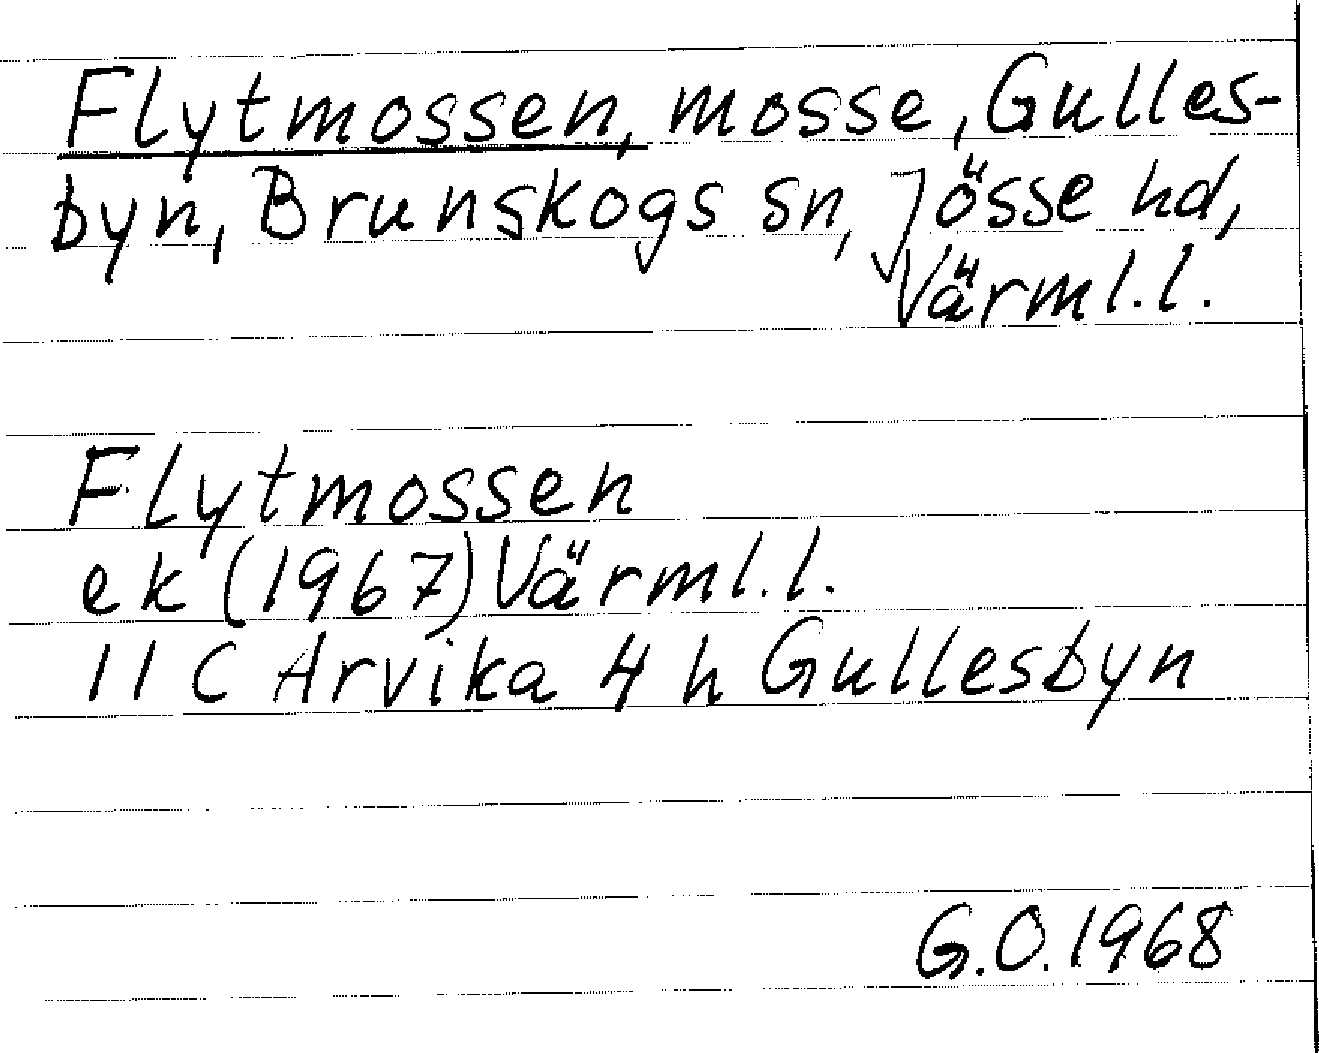 Flytmossen, mosse, Gulles-
byn, Brunskogs sn, Jösse hd,
Värml.l.
Flytmossen
ek (1967) Värml.l.
11 C Arvika 4 h Gullesbyn
G.O. 1968